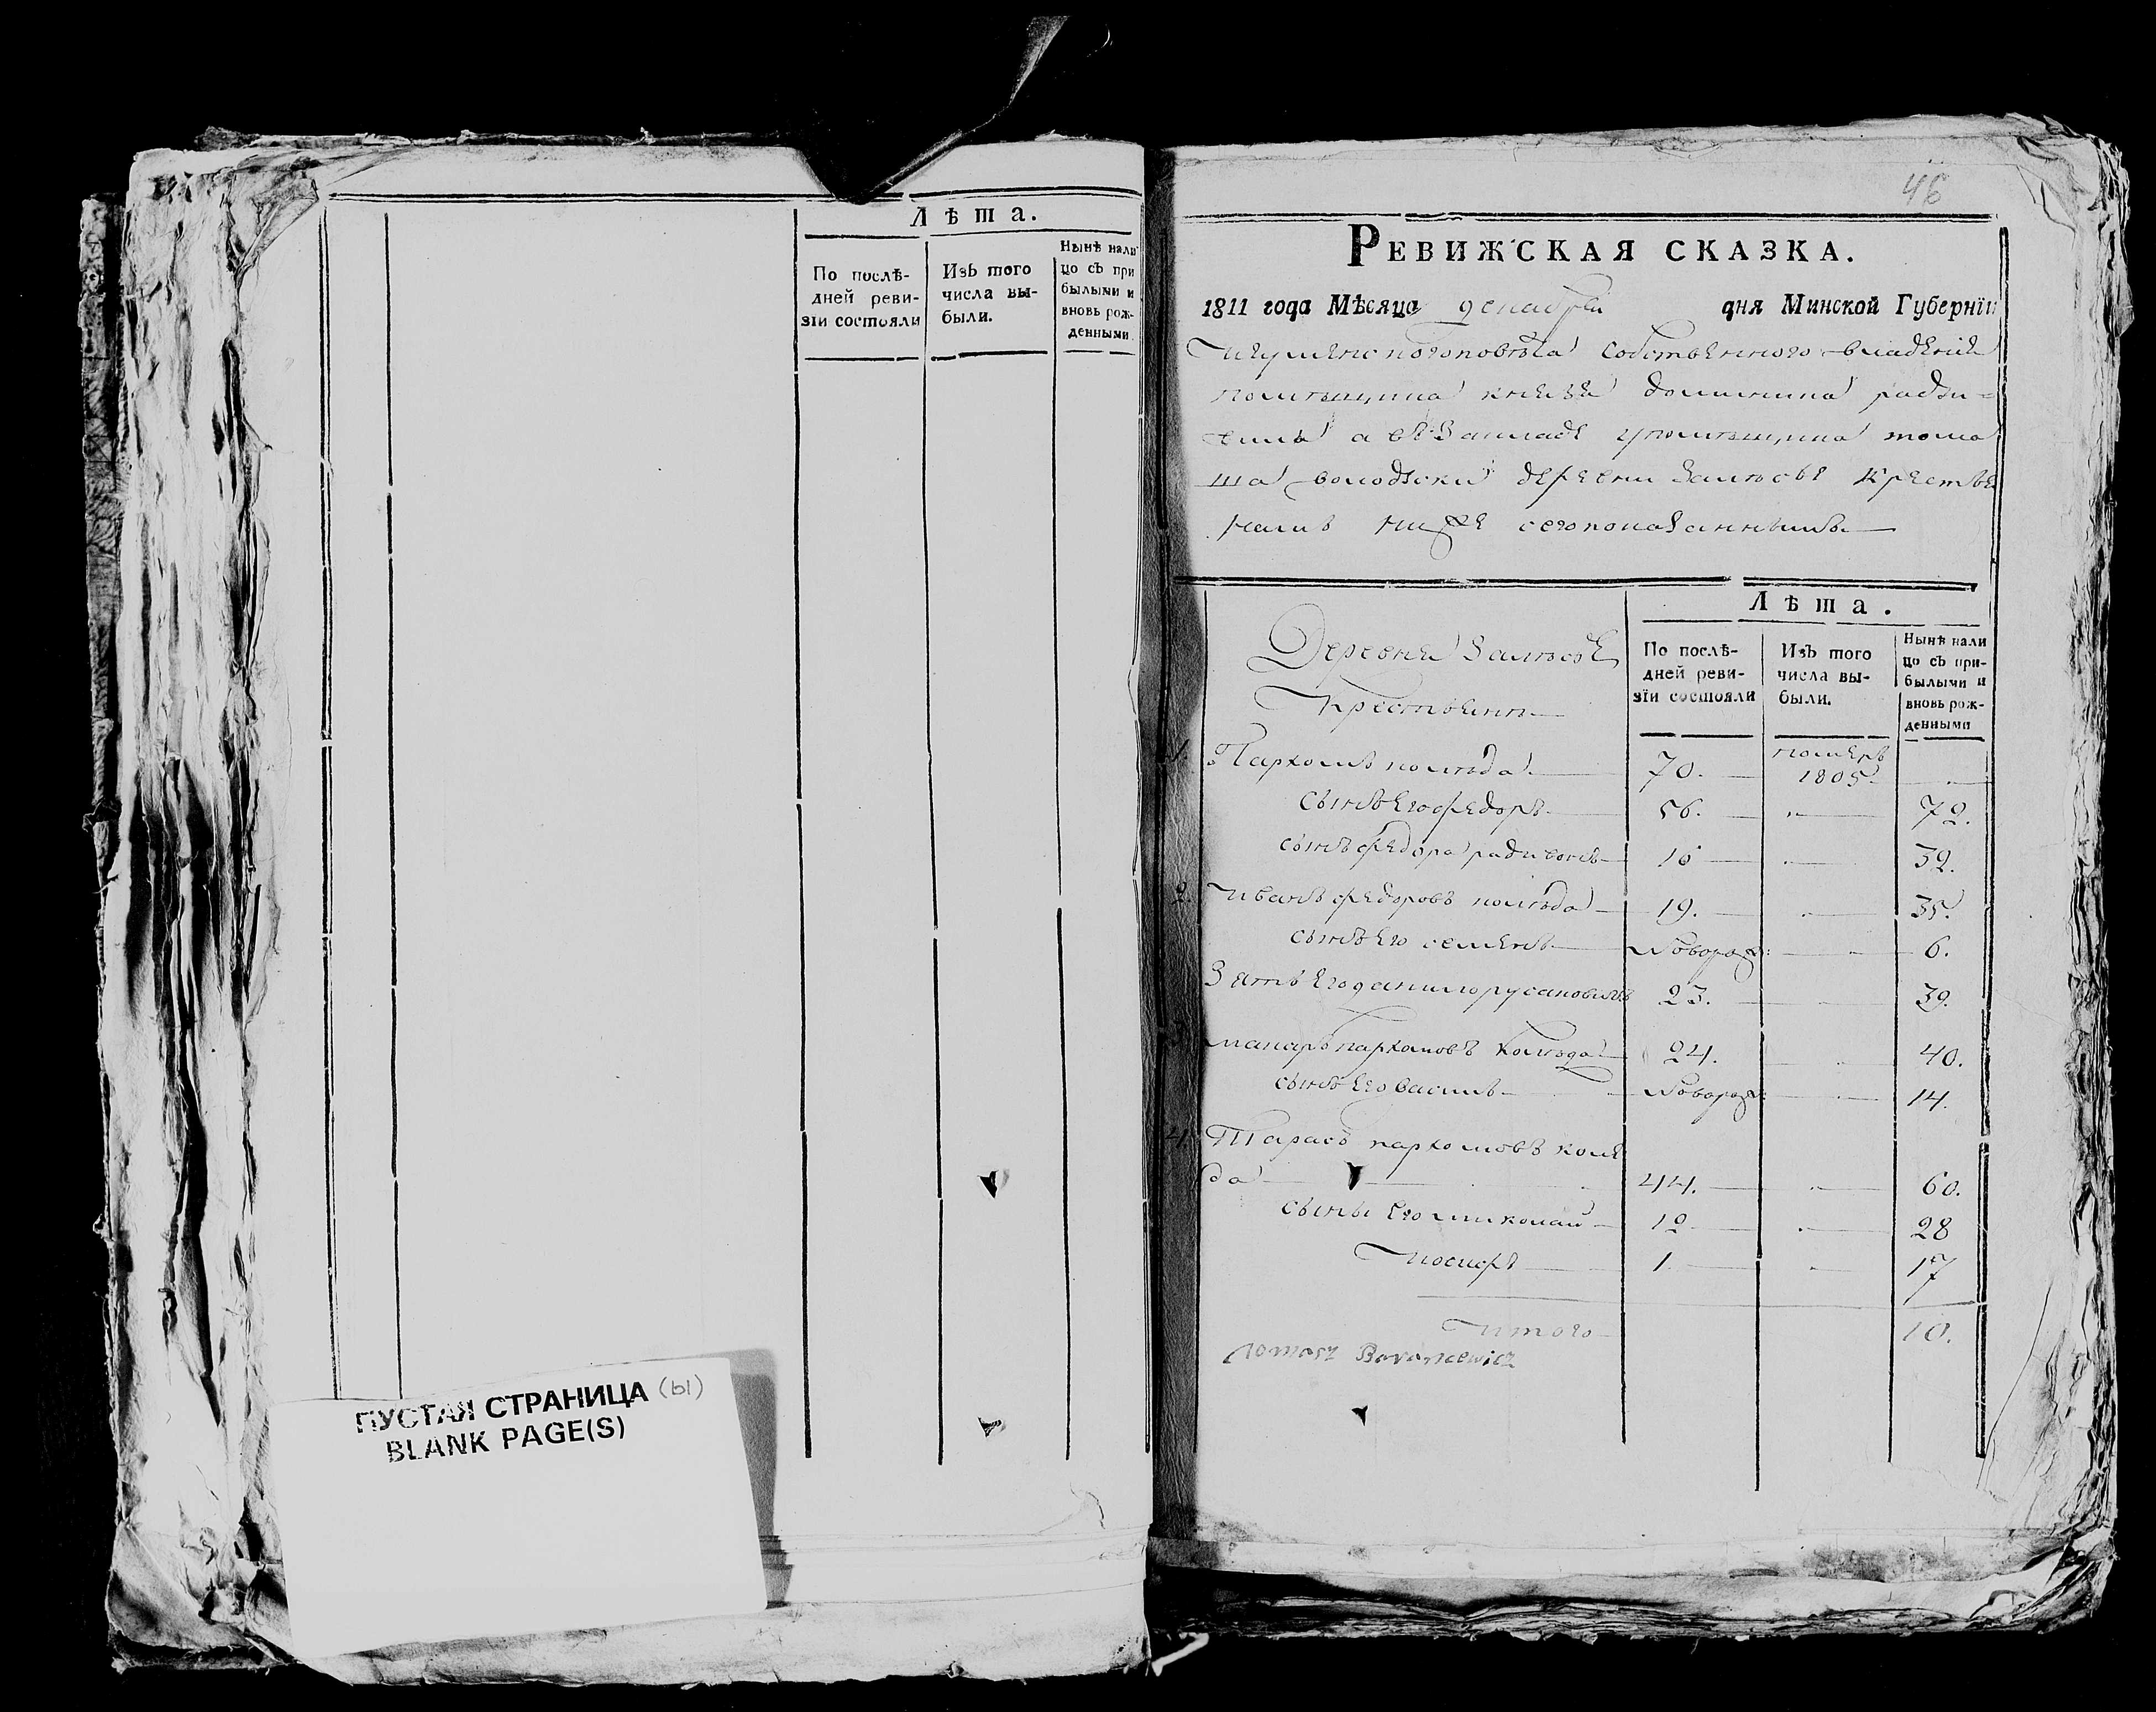 Лѣта.
По послѣ-
дней реви-
зіи состояли
Изъ того
числа вы-
были.
Нынѣ нали
цо съ при
былыми и
вновь рож-
денными.
ПУСТАЯ СТРАНИЦА (ы)
BLANK PAGE(S)
46
РЕВИЖСКАЯ СКАЗКА.
1811 года Мѣсяца декабря дня Минской Губернїи
игуменскогоповѣта собственного владения
помѣщика князя доминика радзи=
вила а въ Закладе упомѣщика тома
ша деревни Залѣсья крестья
намъ ниже сегопоказаннымъ
Деревня Залѣсье
Крестьяне
Лѣта.
По послѣ-
дней реви-
зїи состояли
Изъ того
числа вы-
были.
Нынѣ нали
цо съ при-
былыми и
вновь рож-
денными
1. Пархомъ колѣда 70. померъ 1805.
сынъ его федоръ 56. 72.
сынъ федора радивонъ 16 32.
2. иванъ федоровъ колѣда 19. 35.
сынъ его семенъ Новорож: 6.
Зять его данило русановичъ 23. 39.
3. макаръ пархомовъ колѣда 24. 40.
сынъ его василь Новорож: 14.
4. Тарасъ пархомовъ коле
да 44. 60.
сыны его миколай 12 28
иосифъ 1 17
итого 10.
Tomasz